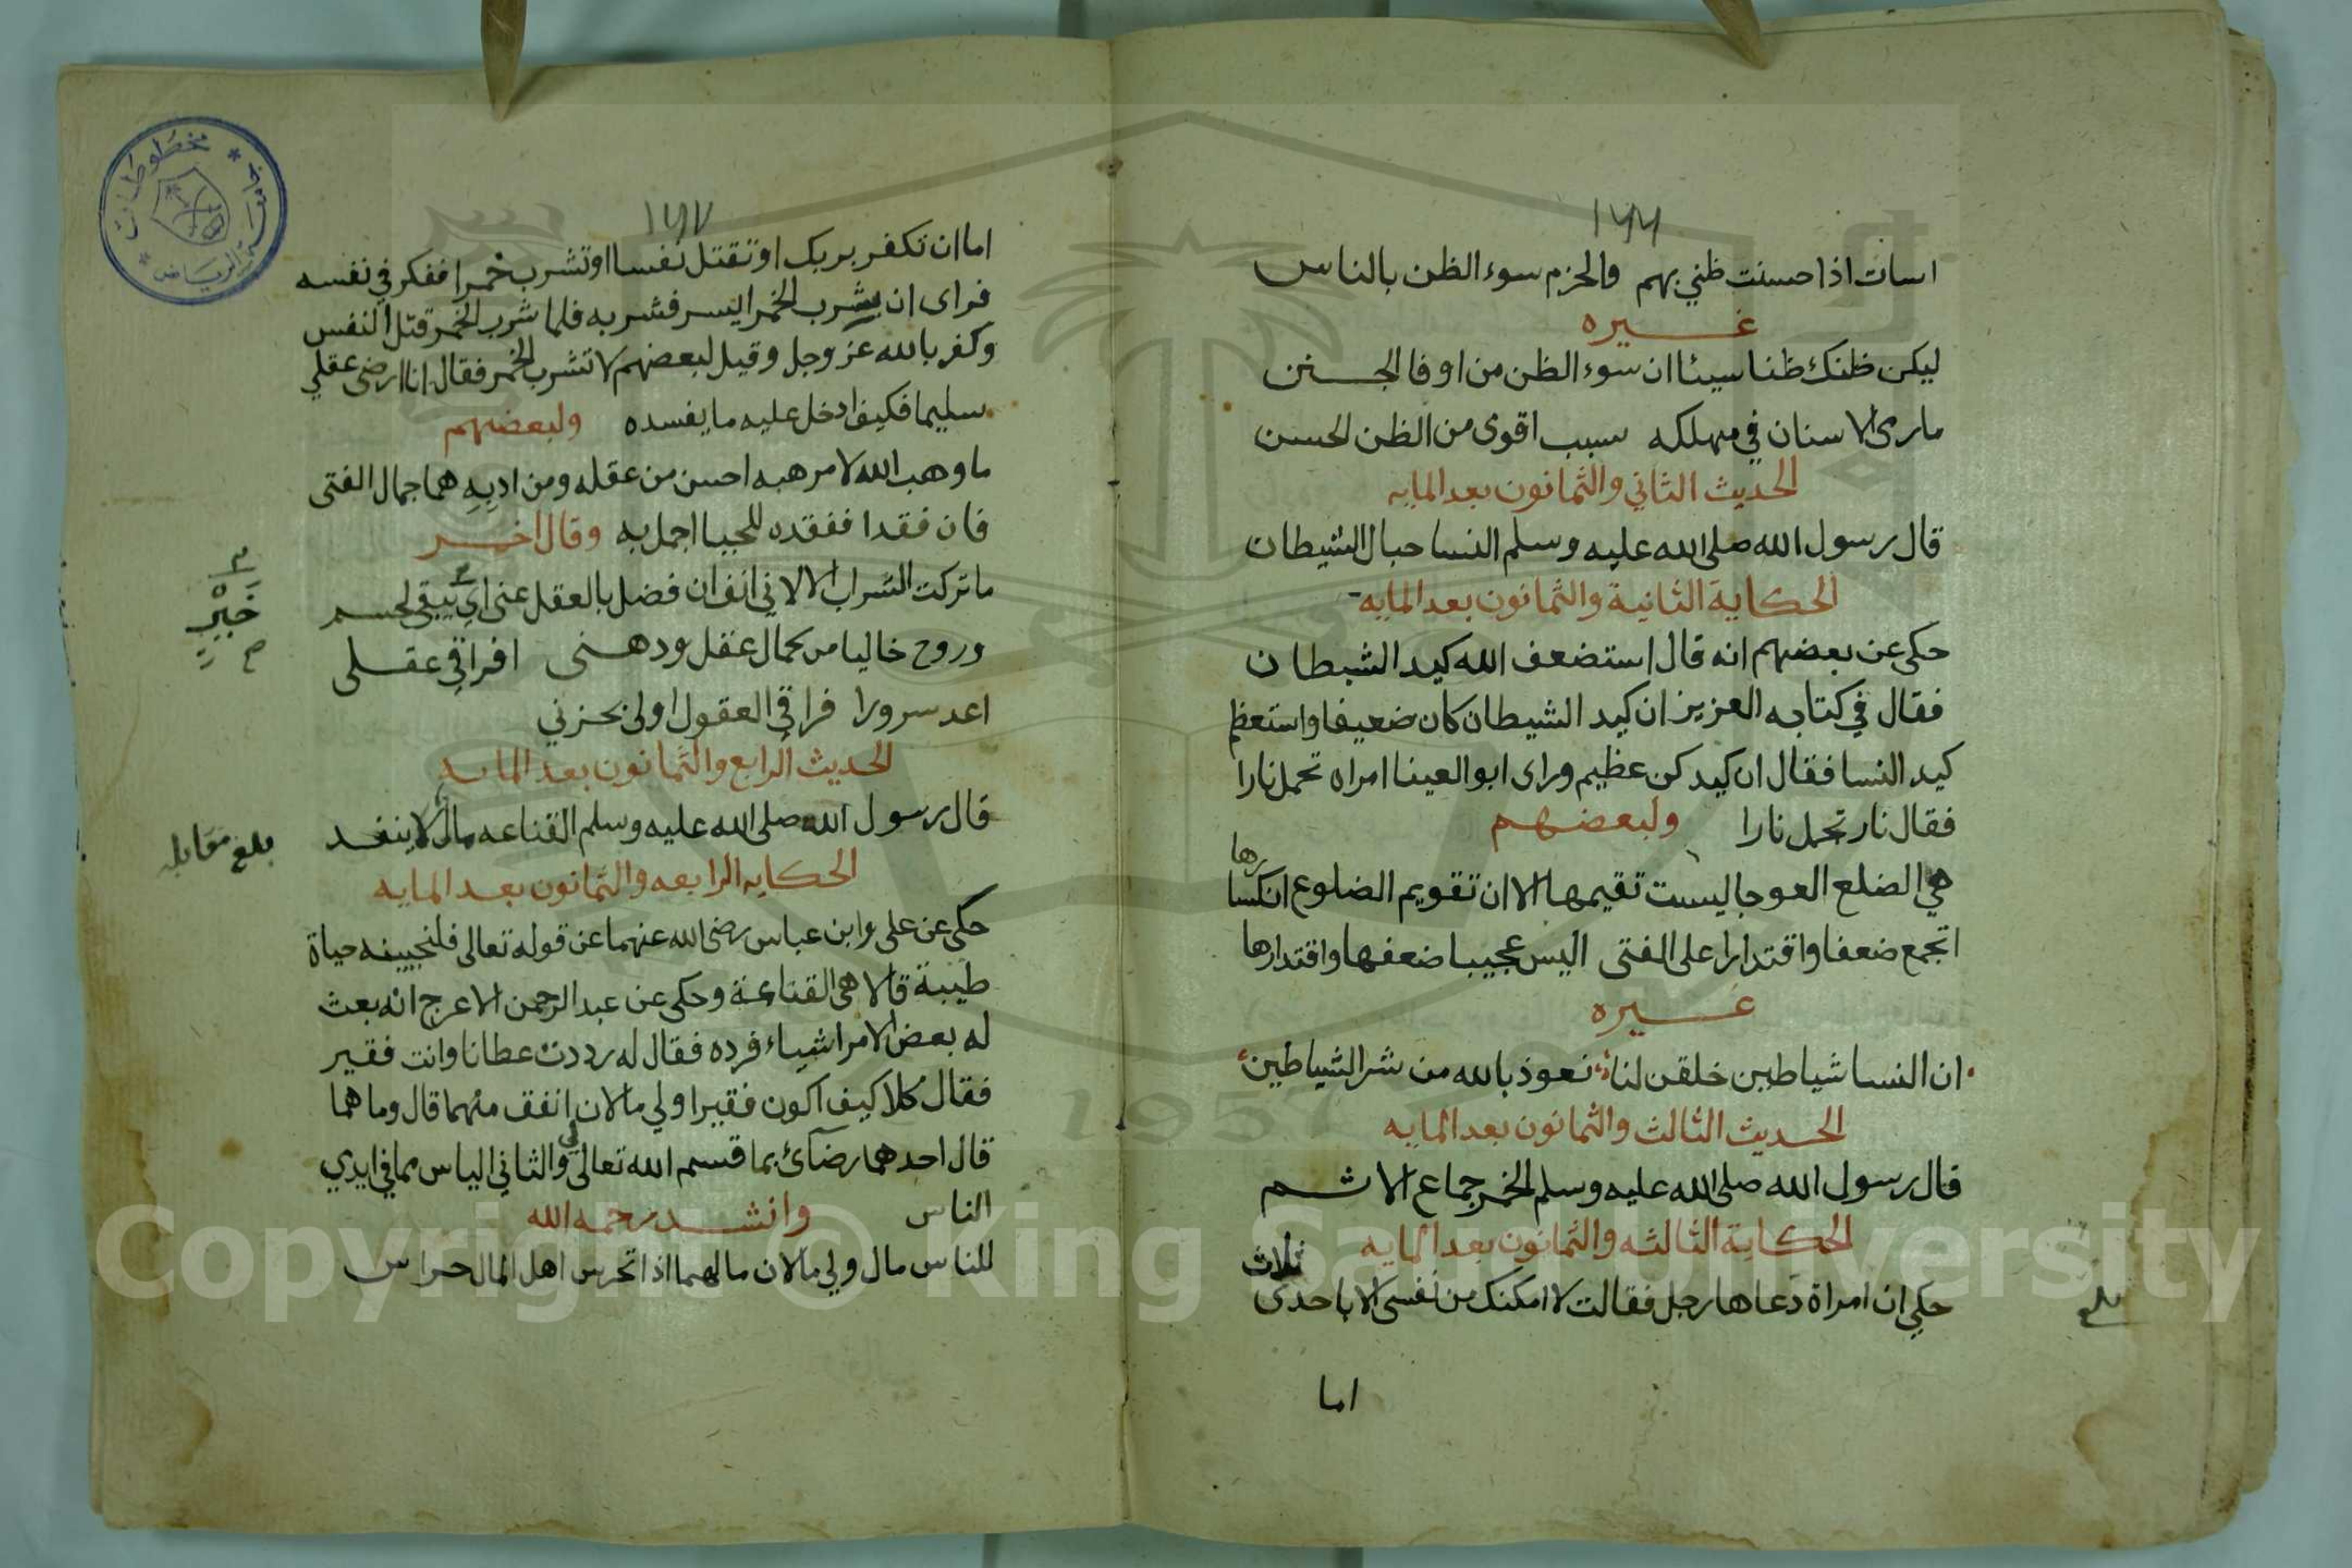 ١٦٦
اسات اذا حسنت ظني بهم والحزم سوء الظن بالناس
غيره
ليكن ظنك ظنا سيئا ان سوء الظن من اوفا الجنن
مارمى الاسنان في مهلكه سبب اقوى من الظن الحسن
الحديث الثاني والثمانون بعد المايه
قال رسول الله صلى الله عليه وسلم النسا حبال الشيطان
الحكاية الثانية والثمانون بعد المايه
حكى عن بعضهم انه قال استضعف الله كيد الشيطان
فقال في كتابه العزيز ان كيد الشيطان كان ضعيفا واستعظم
كيد النسا فقال ان كيدكن عظيم وراى ابو العينا امراه تحمل نارا
فقال نار تحمل نارا ولبعضهم
هي الضلع العوجا ليست تقيمها الا ان تقويم الضلوع انكسارها
اتجمع ضعفا واقتدارا على الفتى اليس عجيبا ضعفها واقتدارها
غيره
ان النسا شياطين خلقن لنا نعوذ بالله من شر الشياطين
الحديث الثالث والثمانون بعد المايه
قال رسول الله صلى الله عليه وسلم الخمر جماع الاثم
الحكاية الثالثه والثمانون بعد المايه
حكي ان امراة دعاها رجل فقالت لا امكنك من نفسى الا باحدى ثلاث
بلغ
اما
١٦٧
اما ان تكفر بربك او تقتل نفسا او تشرب خمرا ففكر في نفسه
فراى ان يشرب الخمر ايسر فشربه فلما شرب الخمر قتل النفس
وكفر بالله عز وجل وقيل لبعضهم لا تشرب الخمر فقال انا ارضى عقلي
سليما فكيف ادخل عليه ما يفسده ولبعضهم
ما وهب الله لامر هبه احسن من عقله ومن ادبه هما جمال الفتى
فان فقدا ففقده للحيا اجمل به وقال اخر
ما تركت الشراب الا لاني انف ان فضل بالعقل عنى اي يبقى لجسم
وروح خاليا من كمال عقل ودهنى افراقي عقلى
اعد سرورا فراقي العقول اولى بحزني
خبر
الحديث الرابع والثمانون بعد المايه
قال رسول الله صلى الله عليه وسلم القناعه مال لا ينفد
بلغ مقابله
الحكايه الرابعه والثمانون بعد المايه
حكى عن على وابن عباس رضى الله عنهما عن قوله تعالى فلنحيينه حياة
طيبة قالا هى القناعة وحكى عن عبد الرحمن الاعرج انه بعث
له بعض الامرا شياء فرده فقال له رددت عطانا وانت فقير
فقال كلا كيف اكون فقيرا ولي مالان انفق منهما قال وما هما
قال احدهما رضآئ بما قسم الله تعالى لي والثاني الياس مما في ايدي
الناس وانشد رحمه الله
للناس مال ولي مالان مالهما اذا تحرس اهل المال حراس
مخطوطات
الرياض
1957
Copyright © King Saud University